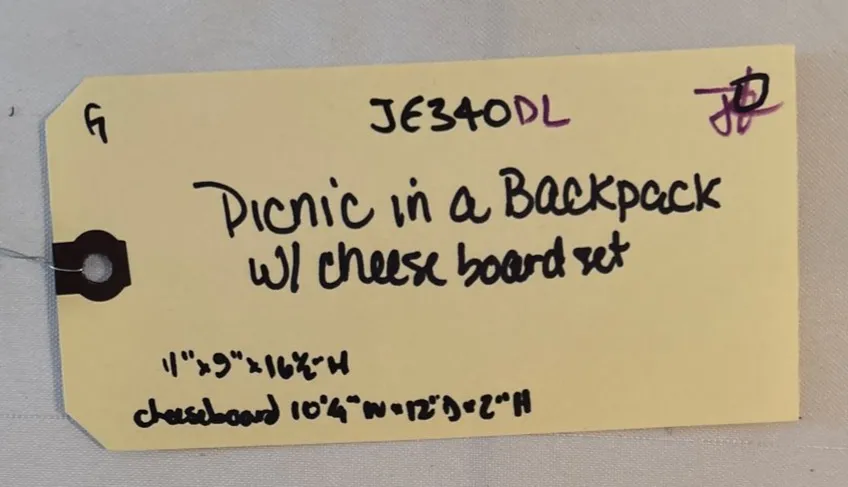 JE340DL
Picnic in a Backpack
w/ cheese board set
11" x 9" x 16½" H
cheeseboard 10"¼" W x 12" D x 2" H